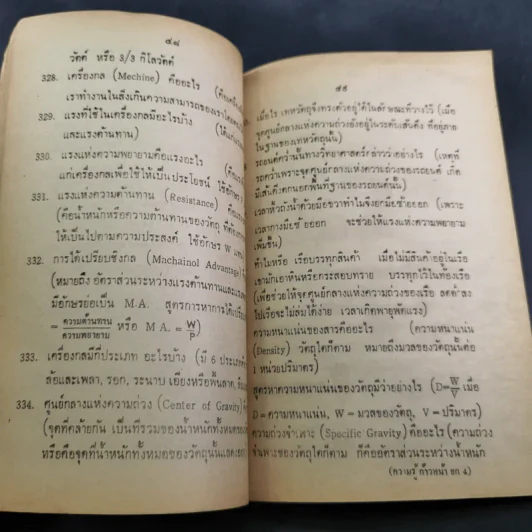 ๔๘
วัตต์ หรือ 3/3 กิโลวัตต์
328. เครื่องกล (Mechine) คืออะไร
เราทำงานในสิ่งเกินความสามารถของเรา
329. แรงที่ใช้ในเครื่องกลมีอะไรบ้าง
และแรงต้านทาน)
330. แรงแห่งความพยายามคือแรงอะไร
แก่เครื่องกลเพื่อใช้ให้เป็นประโยชน์ ใช้อักษร
331. แรงแห่งความต้านทาน (Resistance)
(คือน้ำหนักหรือความต้านทานของวัตถุ ที่ต้อง
ให้เป็นไปตามความประสงค์ ใช้อักษร W
332. การได้เปรียบเชิงกล (Machainol Advantage)
(หมายถึง อัตราส่วนระหว่างแรงต้านทานและแรง
มีอักษรย่อเป็น M.A. สูตรการหาการได้เปรียบ
= ความต้านทาน/ความพยายาม หรือ M A. = W/P)
333. เครื่องกลมีกี่ประเภท อะไรบ้าง (มี 6 ประเภท
ล้อและเพลา, รอก, ระนาบ เอียงหรือพื้นลาด,
334. ศูนย์กลางแห่งความถ่วง (Center of Gravity)
(จุดที่คล้ายกัน เป็นที่รวมของน้ำหนักทั้งหมด
หรือคือจุดที่น้ำหนักทั้งหมดของวัตถุนั้น
๔๙
เมื่อไร เทหวัตถุจึงทรงตัวอยู่ได้ในลักษณะที่วางไว้ (เมื่อ
จุดศูนย์กลางแห่งความถ่วงยังอยู่ในระดับเส้นดิ่ง ที่อยู่ภาย
ในฐานของเทหวัตถุนั้น)
รถยนต์คว่ำนั้นทางวิทยาศาสตร์กล่าวว่าอย่างไร (เหตุที่
รถคว่ำเพราะจุดศูนย์กลางแห่งความถ่วงของรถยนต์ เกิด
มีเส้นดิ่งตกนอกพื้นที่ฐานของรถยนต์นั้น)
เวลาหิ้วถังน้ำด้วยมือขวาทำไมจึงยกมือซ้ายออก (เพราะ
เวลากางมือซ้ายออก จะช่วยให้แรงแห่งความพยายาม
เพิ่มขึ้น)
ทำไมหรือ เรือบรรทุกสินค้า เมื่อไม่มีสินค้าอยู่ในเรือ
เขามักเอาหินหรือกระสอบทราย บรรทุกไว้ในท้องเรือ
(เพื่อช่วยให้จุดศูนย์กลางแห่งความถ่วงของเรือ ลดต่ำลง
ไปเรือจะไม่ล่มได้ง่าย เวลาเกิดพายุพัดแรง)
ความหนาแน่นของสารคืออะไร (ความหนาแน่น
(Density) วัตถุใดก็ตาม หมายถึงมวลของวัตถุนั้นต่อ
1 หน่วยปริมาตร)
สูตรหาความหนาแน่นของวัตถุมีว่าอย่างไร (D=W/V เมื่อ
D = ความหนาแน่น, W = มวลของวัตถุ, V = ปริมาตร)
ความถ่วงจำเพาะ (Specific Gravity) คืออะไร (ความถ่วง
จำเพาะของวัตถุใดก็ตาม ก็คืออัตราส่วนระหว่างน้ำหนัก
(ความรู้ ก้าวหน้า ฉก 4)